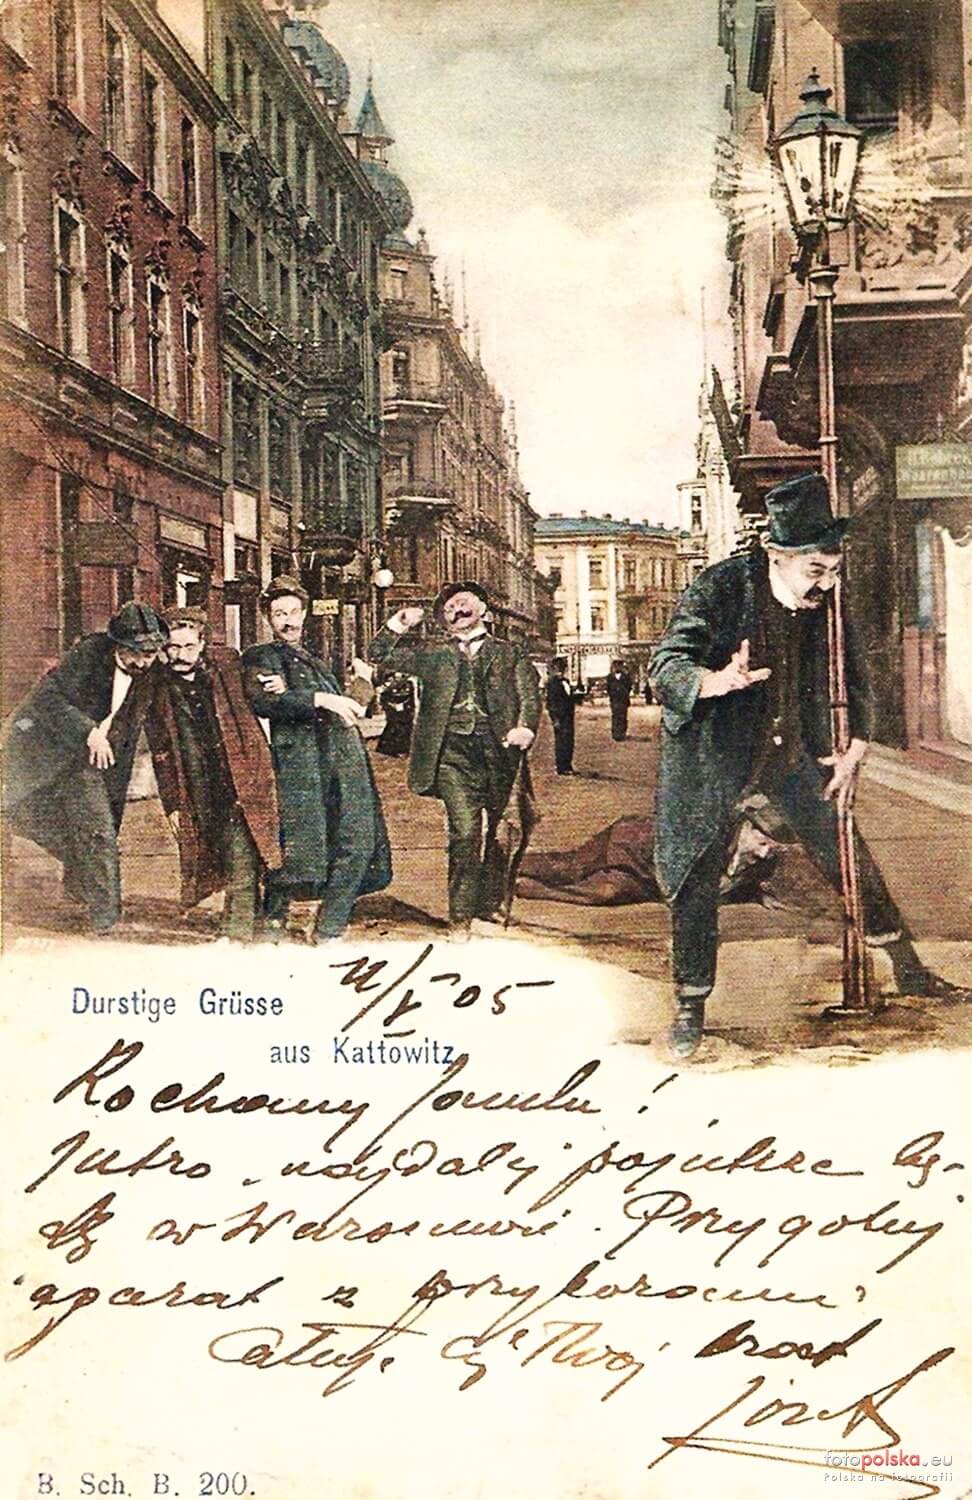 Durstige Grüsse
aus Kattowitz
11/V 05
Kochany !
Jutro, najdalej pojutrze bę-
dę w Warszawie. Przygotuj
aparat z przyborami.
Całuję Cię Twój brat
Józef
B. Sch. B. 200.
fotopolska.eu
Polska na fotografii